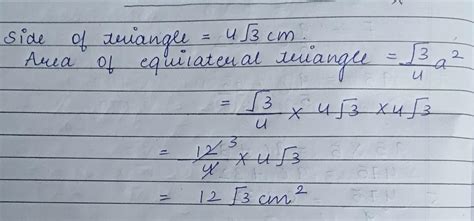 Side of triangle = 4√3 cm.
Area of equilateral triangle = √3/4 a²
= √3/4 × 4√3 × 4√3
= 12/4 3 × 4√3
= 12√3 cm²